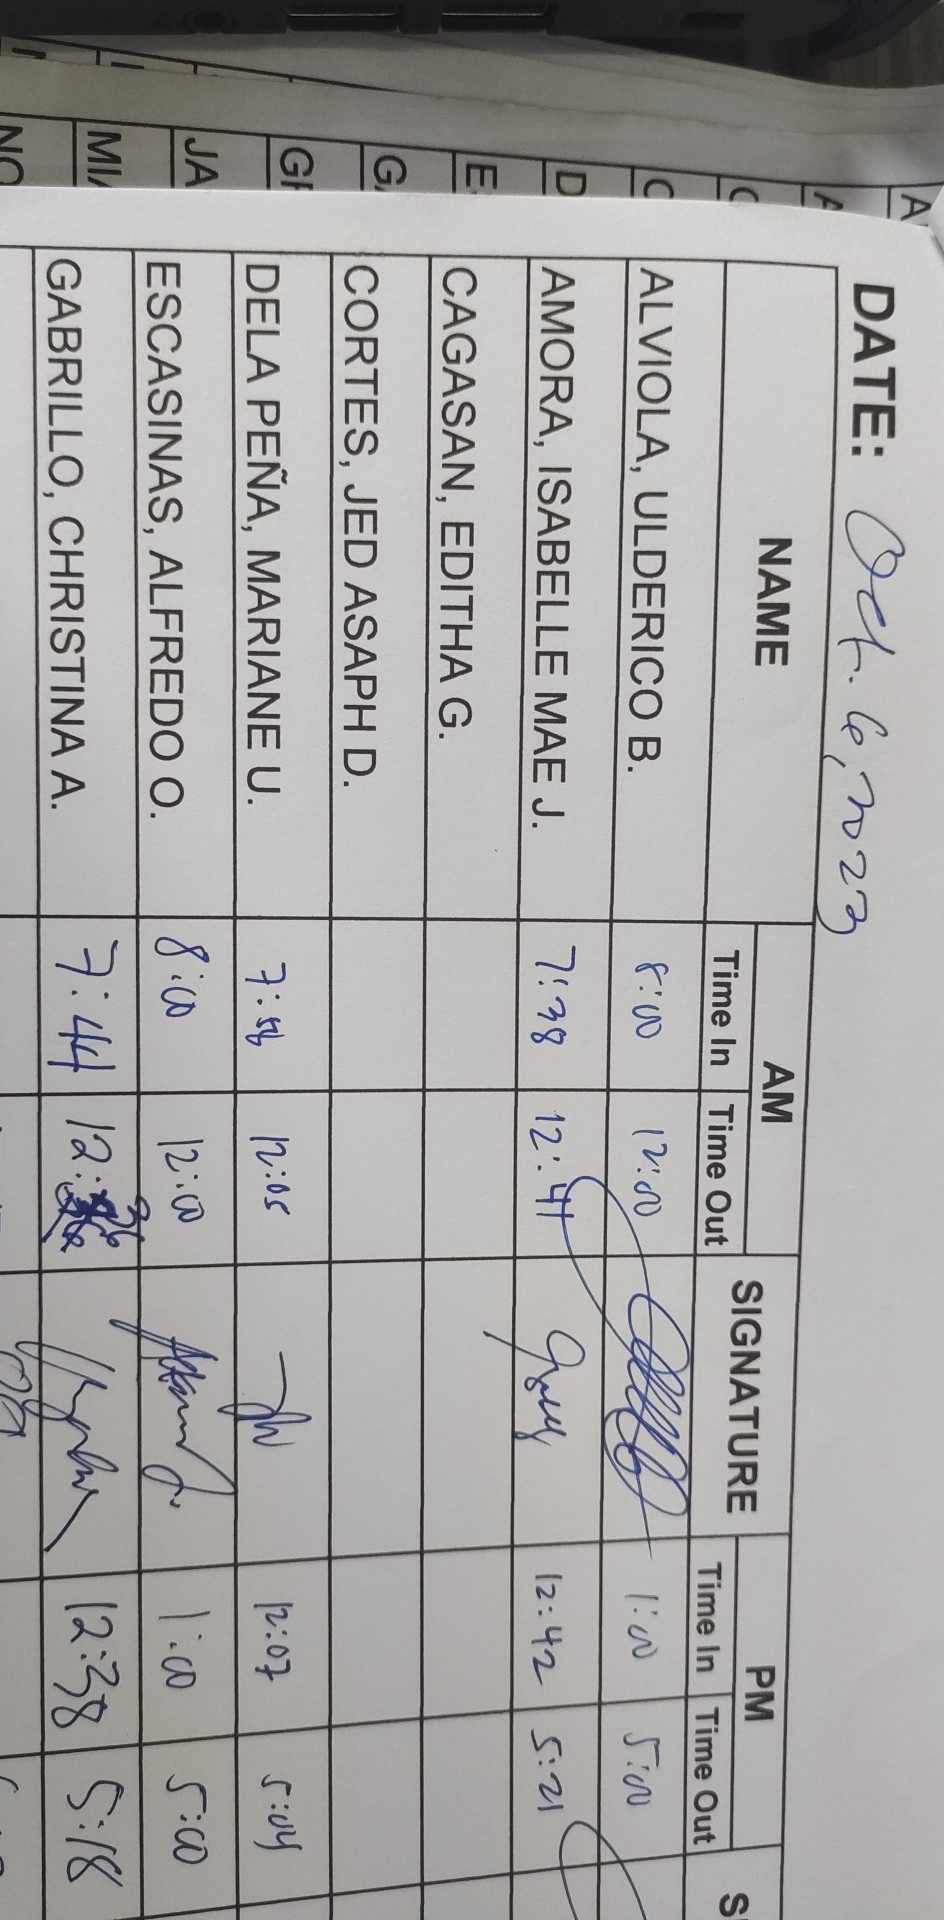 DATE: Oct. 6, 2023
NAME AM SIGNATURE PM
Time In Time Out Time In Time Out
ALVIOLA, ULDERICO B. 8:00 12:00 1:00 5:00
AMORA, ISABELLE MAE J. 7:38 12:41 12:42 5:21
CAGASAN, EDITHA G.
CORTES, JED ASAPH D.
DELA PEÑA, MARIANE U. 7:56 12:05 12:07 5:04
ESCASINAS, ALFREDO O. 8:00 12:00 1:00 5:00
GABRILLO, CHRISTINA A. 7:44 12:36 12:38 5:18